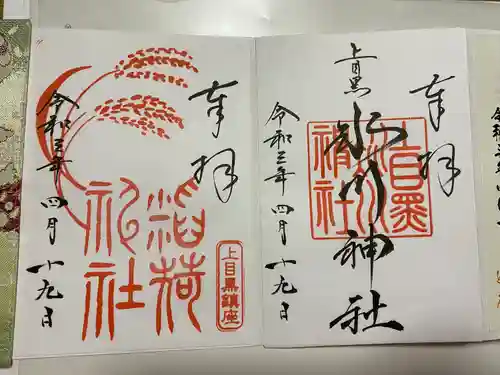 奉拝
上目黒
氷川神社
上目黒氷川神社
令和三年四月十九日
奉拝
稲荷社
上目黒鎮座
令和三年四月十九日